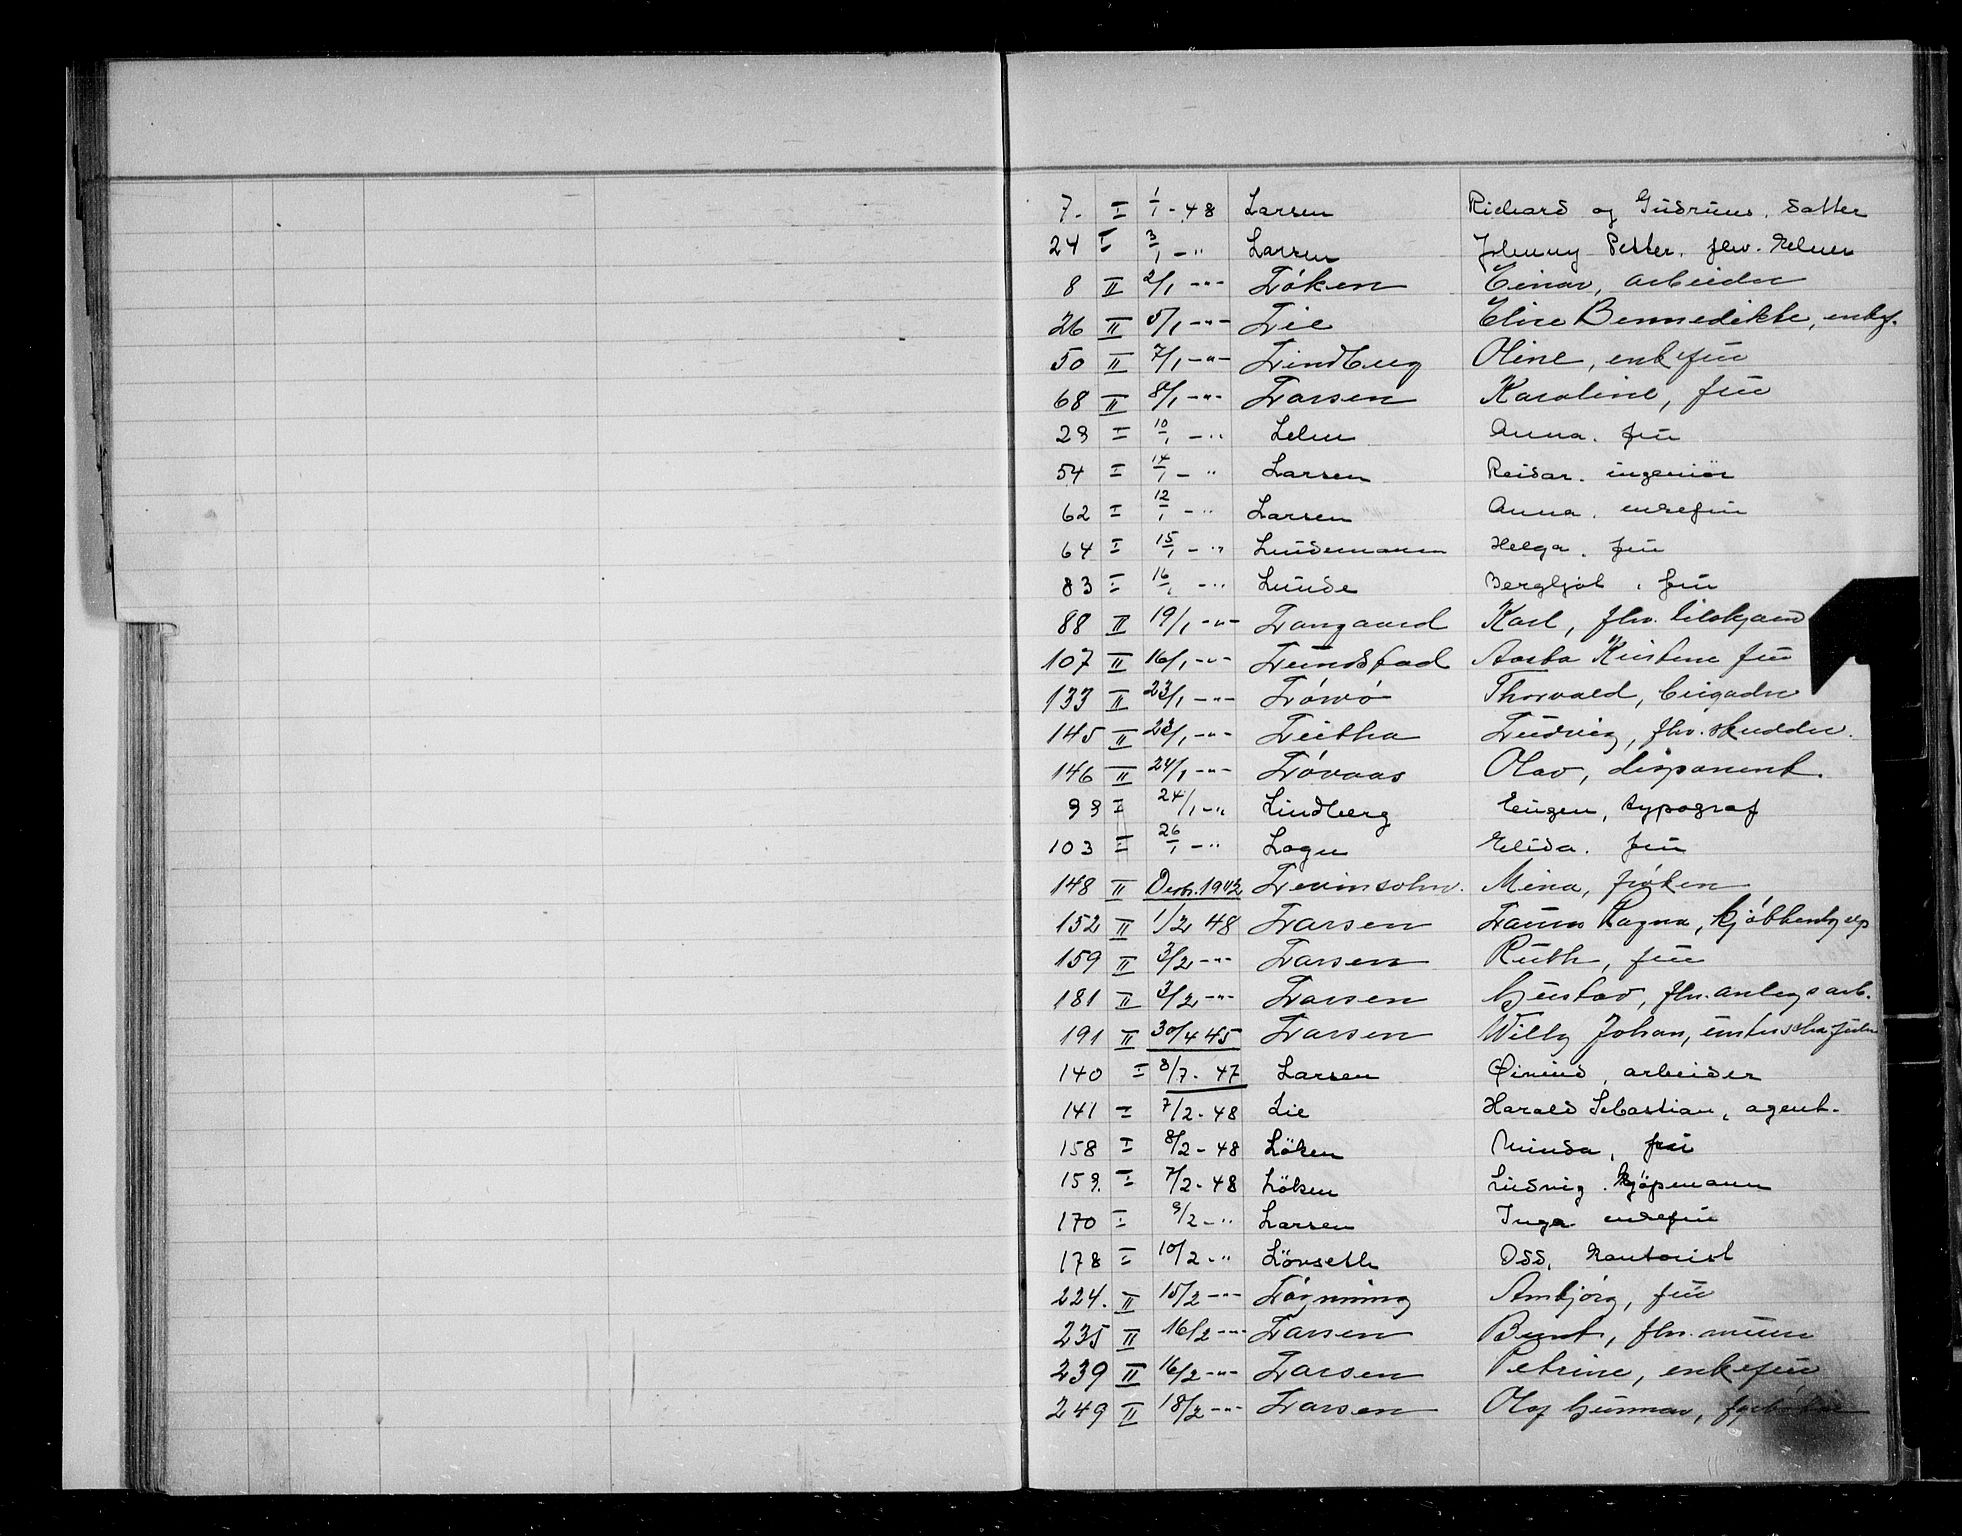 7. I 1/1 - 48 Larsen Richard og Gudruns datter
24 I 3/1 - " Larsen Johnny Petter.
8 II 2/1 -"- Løken Einar, arbeider
26 II 5/1 -"- Lie Elise Bennedikte, enkef.
50 II 7/1 -"- Lindberg Oline, enkefru
68 II 8/1 -"- Larsen Karoline, fru
29 I 10/1 - " Anna. fru
54 I 14/1 - " Larsen Reidar. ingeniör
62 I 12/1 - " Larsen Anna. enkefru
64 I 15/1 - " Lindemann Helga. fru
83 I 16/1 - " Lunde Bergljot, fru
88 II 19/1 -"- Langaard Karl, fhv.
107 II 16/1 -"- Lundstad Aasta Kristine fru
133 II 23/1 -"- Thorvald, brigader
145 II 23/1 -"- Ludvig, fhv. skredder.
146 II 24/1 -"- Løvaas Olav, disponent.
99 I 24/1 - " Lindberg Eugen, typograf
103 I 26/1 - " Elida. fru
148 II Desbr. 1942 Levinsohn. Mina, frøken
152 II 1/2 48 Larsen Ragna, kjøkkenhjelp
159 II 3/2 -"- Larsen Ruth, fru
181 II 3/2 -"- Larsen Gustav, fhv. anlegsarb.
191 II 30/4 45 Larsen Willy Johan,
140 I 8/7 - 47 Larsen Øivind, arbeider
141 I 7/2 - 48 Lie Harald Sebastian, agent.
158 I 8/2 - 48 Löken Minda, fru
159. I 7/2 - 48 Löken Ludvig. kjöpmann
170 I 9/2 - " Larsen Inga enkefru
178 I 10/2 - " Lövseth Odd, kontorist
224. II 15/2 -"- Anbjørg, fru
235 II 16/2 -"- Larsen Bernt, fhv. murer
239 II 16/2 -"- Larsen Petrine, enkefru
249 II 18/2 -"- Larsen Olaf Gunnar, fyrbøter